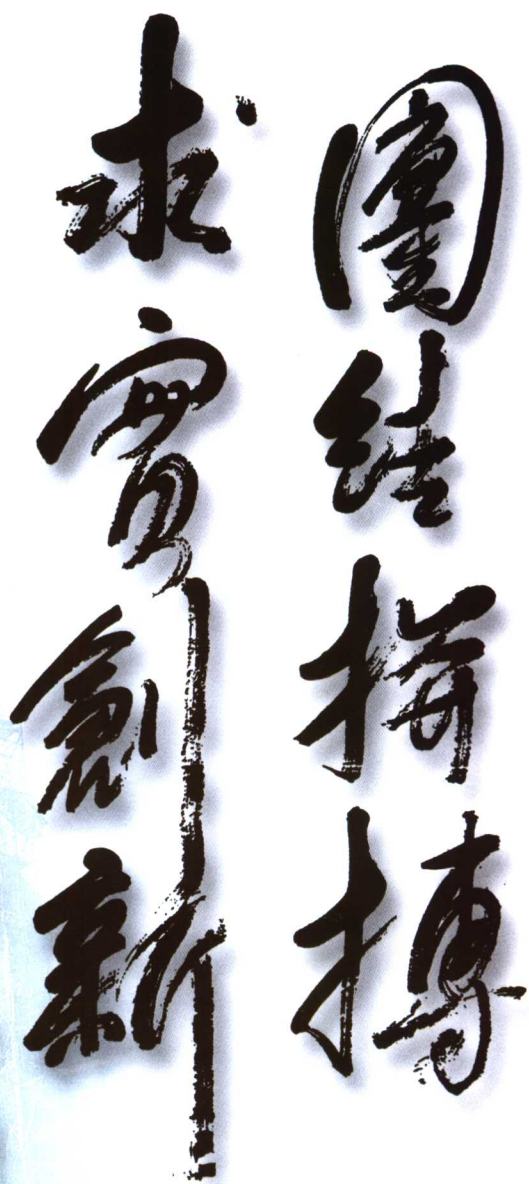 團结拼搏
求實創新